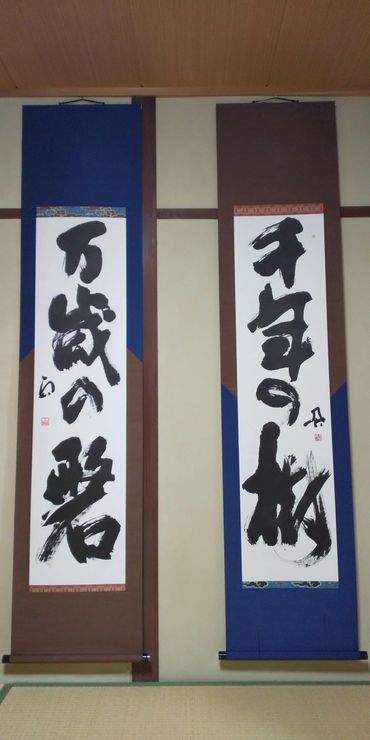 千年の樹
万歳の磐